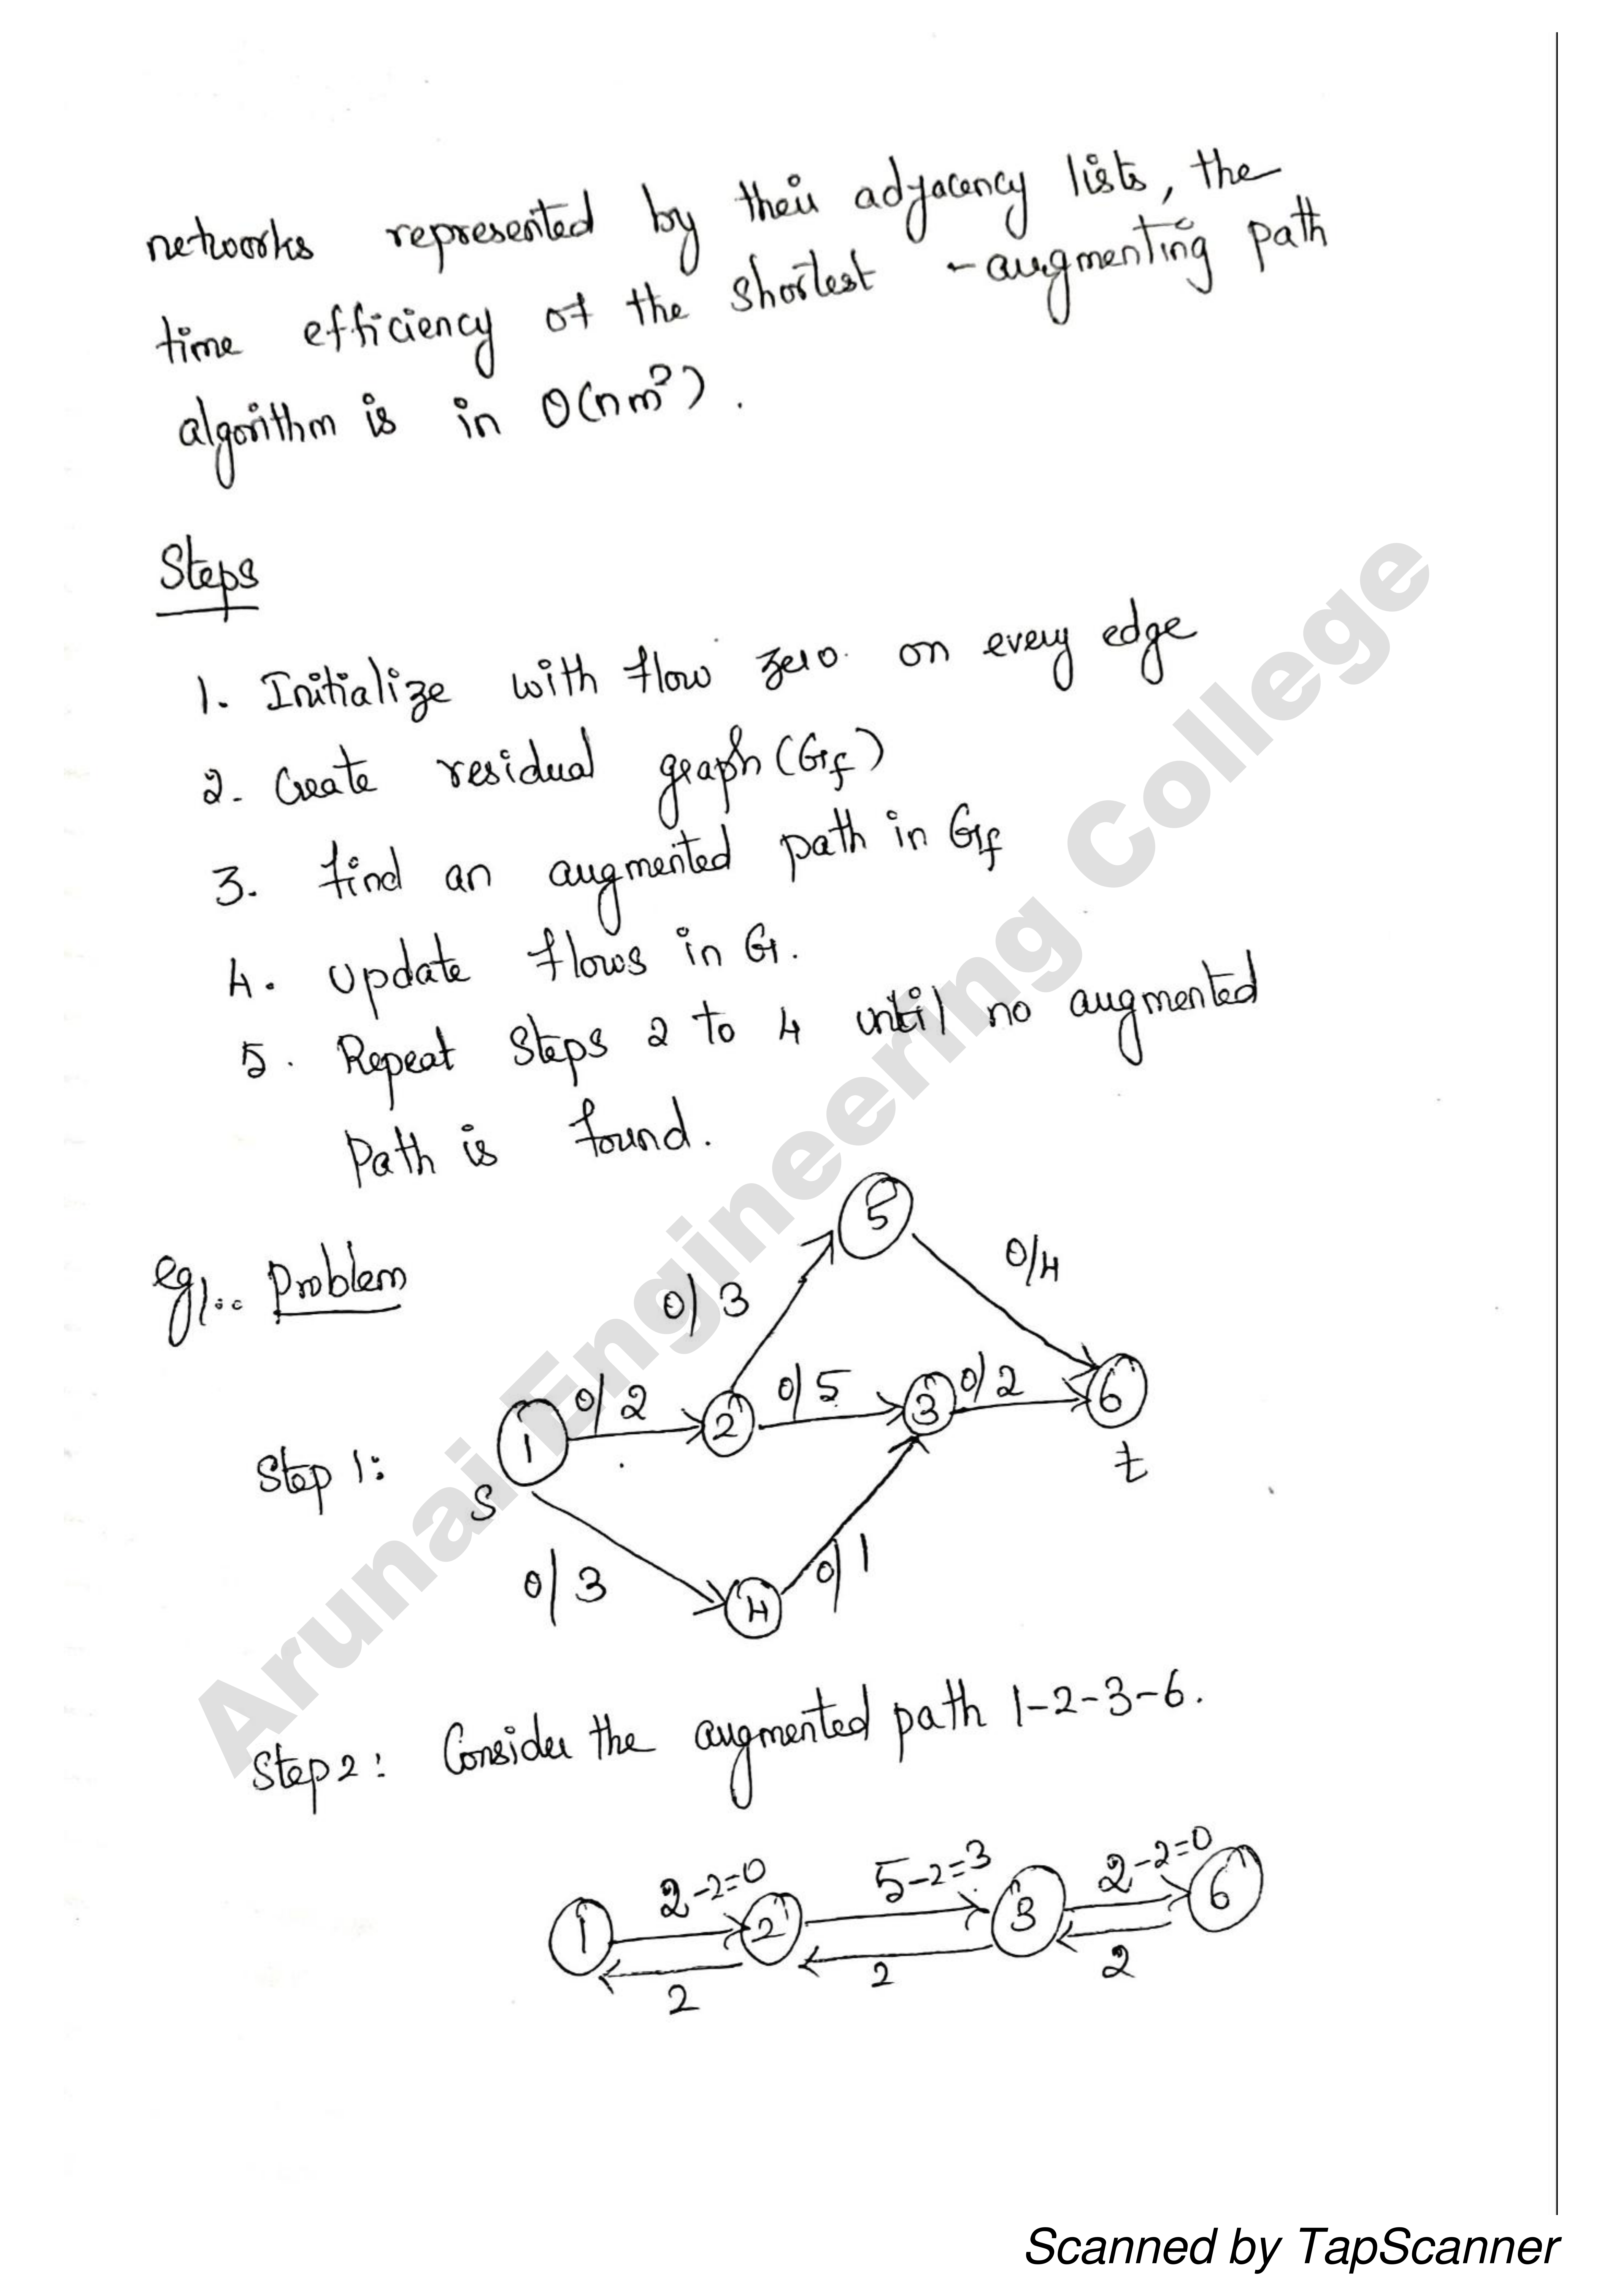 networks represented by their adjacency lists, the
time efficiency of the shortest - augmenting path
algorithm is in O(nm²).
Steps
1. Initialize with flow zero on every edge
2. Create residual graph (Gf)
3. find an augmented path in Gf
4. Update flows in G.
5. Repeat Steps 2 to 4 until no augmented
Path is found.
eg1.. Problem
Step 1:
5
0/3
0/4
1
0/2
2
0/5
3
0/2
6
S
t
0/3
4
0/1
Step 2: Consider the augmented path 1-2-3-6.
2-2=0
5-2=3
2-2=0
1
2
3
6
2
2
2
Arunai Engineering College
Scanned by TapScanner